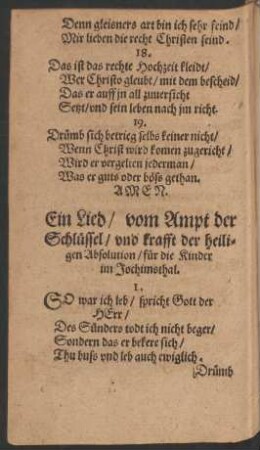 Denn gleisners art bin ich sehr feind/
Mir lieben die recht Christen seind.
18.
Das ist das rechte Hochzeit kleidt/
Wer Christo gleubt/ mit dem bescheid/
Das er auff jn all zuuersicht
Setzt/ vnd sein leben nach jm richt.
19.
Drümb sich betrieg selbs keiner nicht/
Wenn Christ wird komen zu gericht/
Wird er vergelten jederman/
Was er guts oder böss gethan.
AMEN.
Ein Lied/ vom Ampt der
Schlüssel/ vnd krafft der heili-
gen Absolution/ für die Kinder
im Jochimsthal.
1.
SO war ich leb/ spricht Gott der
HErr/
Des Sünders todt ich nicht beger/
Sondern das er bekere sich/
Thu buss vnd leb auch ewiglich.
Drümb